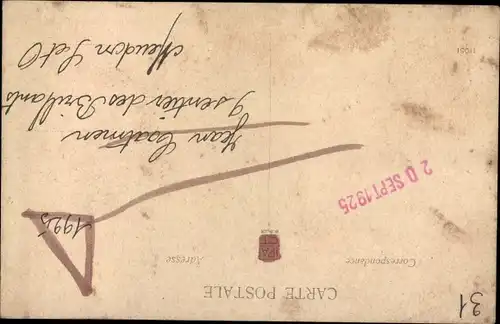 CARTE POSTALE
Correspondance
Adresse
20 SEPT 1925
1925
Jean
9 sentier des Brillants
Meudon S et O
31